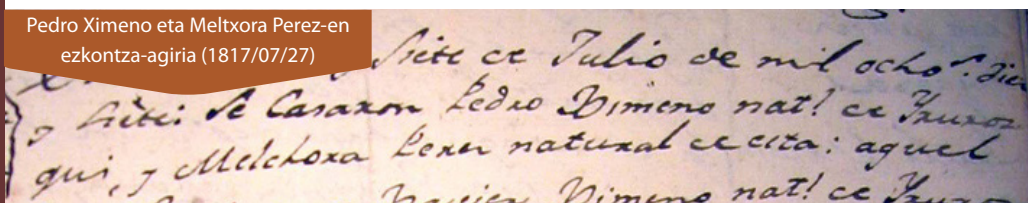 Pedro Ximeno eta Meltxora Perez-en
ezkontza-agiria (1817/07/27)
Siete de Julio de mil ocho.s diez
y siete: Se Casaron Pedro Ximeno nat.l de Yruroz
qui, y Melchora Perez natural de esta: aquel
Ximeno nat.l de Yruroz